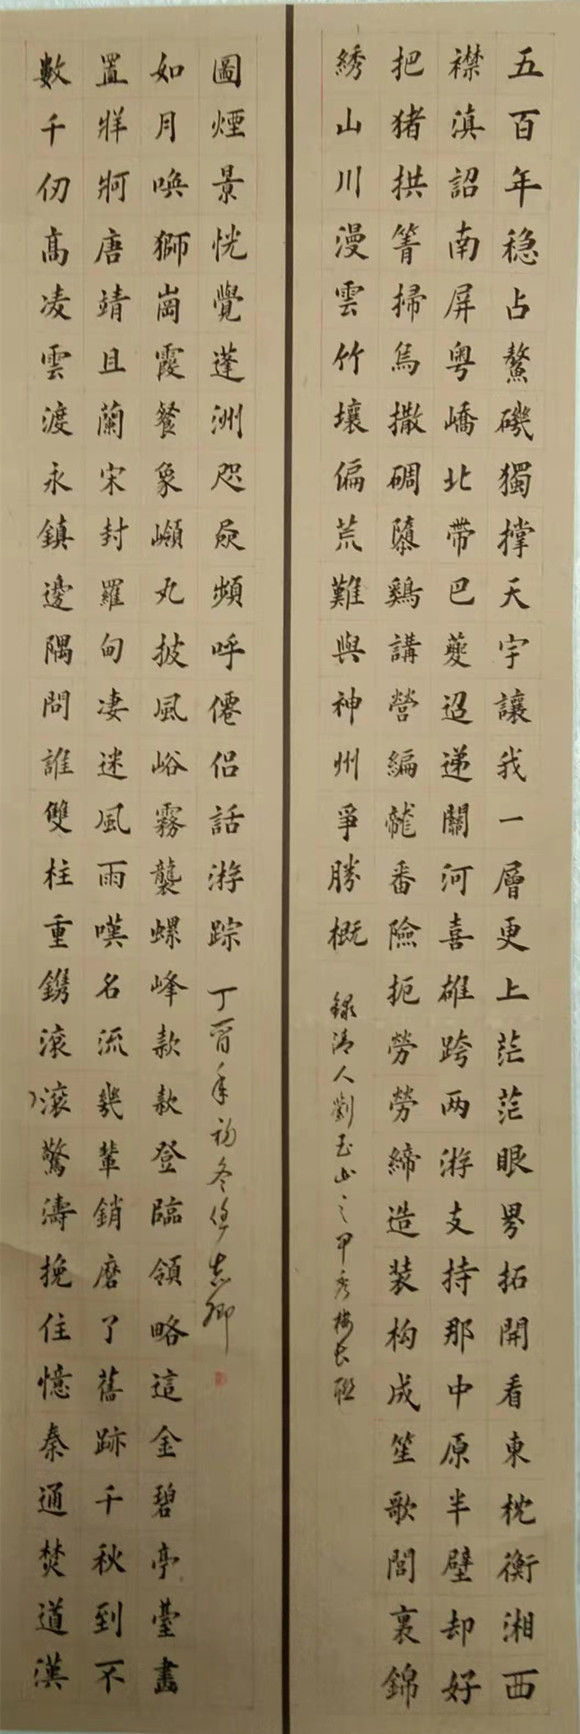 五百年稳占鰲磯獨撑天宇讓我一層更上茫茫眼界拓開看東枕衡湘西
襟滇詔南屏粤嶠北帶巴夔迢递關河喜雄跨两游支持那中原半壁却好
把猪拱箐掃烏撒碉隳鷄講營編龍番險扼勞勞締造装构成笙歌閭裏錦
綉山川漫雲竹壤偏荒難與神州爭勝概
録清人劉玉山之甲秀樓长联
數千仞高凌雲渡永鎮邊隅問誰雙柱重鎸滚滚驚濤挽住憶秦通焚道漢
置牂牁唐靖且蘭宋封羅甸凄迷風雨嘆名流幾輩銷磨了舊跡千秋到不
如月唤獅崗霞餐象嶺丸披風峪霧襲螺峰款款登臨領略這金碧亭臺畵
圖煙景恍覺蓬洲咫尺頻呼僊侣話游踪
丁酉年初冬